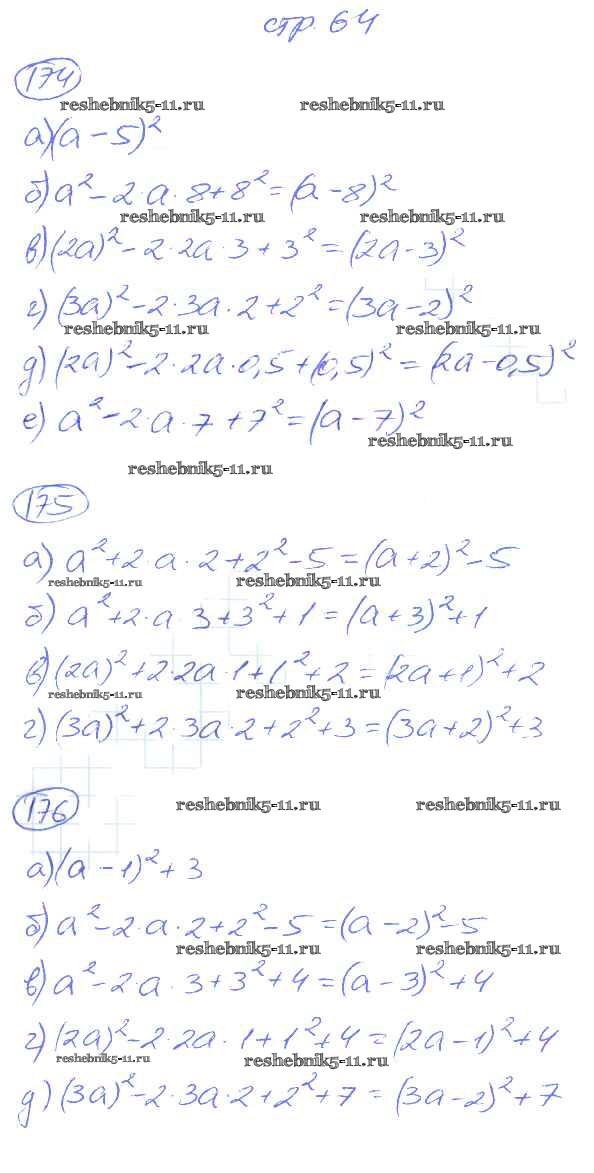 стр. 64
174
reshebnik5-11.ru reshebnik5-11.ru
а) (a - 5)²
б) a² - 2·a·8 + 8² = (a - 8)²
reshebnik5-11.ru reshebnik5-11.ru
в) (2a)² - 2·2a·3 + 3² = (2a - 3)²
г) (3a)² - 2·3a·2 + 2² = (3a - 2)²
reshebnik5-11.ru reshebnik5-11.ru
д) (2a)² - 2·2a·0,5 + (0,5)² = (2a - 0,5)²
е) a² - 2·a·7 + 7² = (a - 7)²
reshebnik5-11.ru
reshebnik5-11.ru
175
а) a² + 2·a·2 + 2² - 5 = (a + 2)² - 5
reshebnik5-11.ru reshebnik5-11.ru
б) a² + 2·a·3 + 3² + 1 = (a + 3)² + 1
в) (2a)² + 2·2a·1 + 1² + 2 = (2a + 1)² + 2
reshebnik5-11.ru reshebnik5-11.ru
г) (3a)² + 2·3a·2 + 2² + 3 = (3a + 2)² + 3
176
reshebnik5-11.ru reshebnik5-11.ru
а) (a - 1)² + 3
б) a² - 2·a·2 + 2² - 5 = (a - 2)² - 5
reshebnik5-11.ru reshebnik5-11.ru
в) a² - 2·a·3 + 3² + 4 = (a - 3)² + 4
г) (2a)² - 2·2a·1 + 1² + 4 = (2a - 1)² + 4
reshebnik5-11.ru reshebnik5-11.ru
д) (3a)² - 2·3a·2 + 2² + 7 = (3a - 2)² + 7